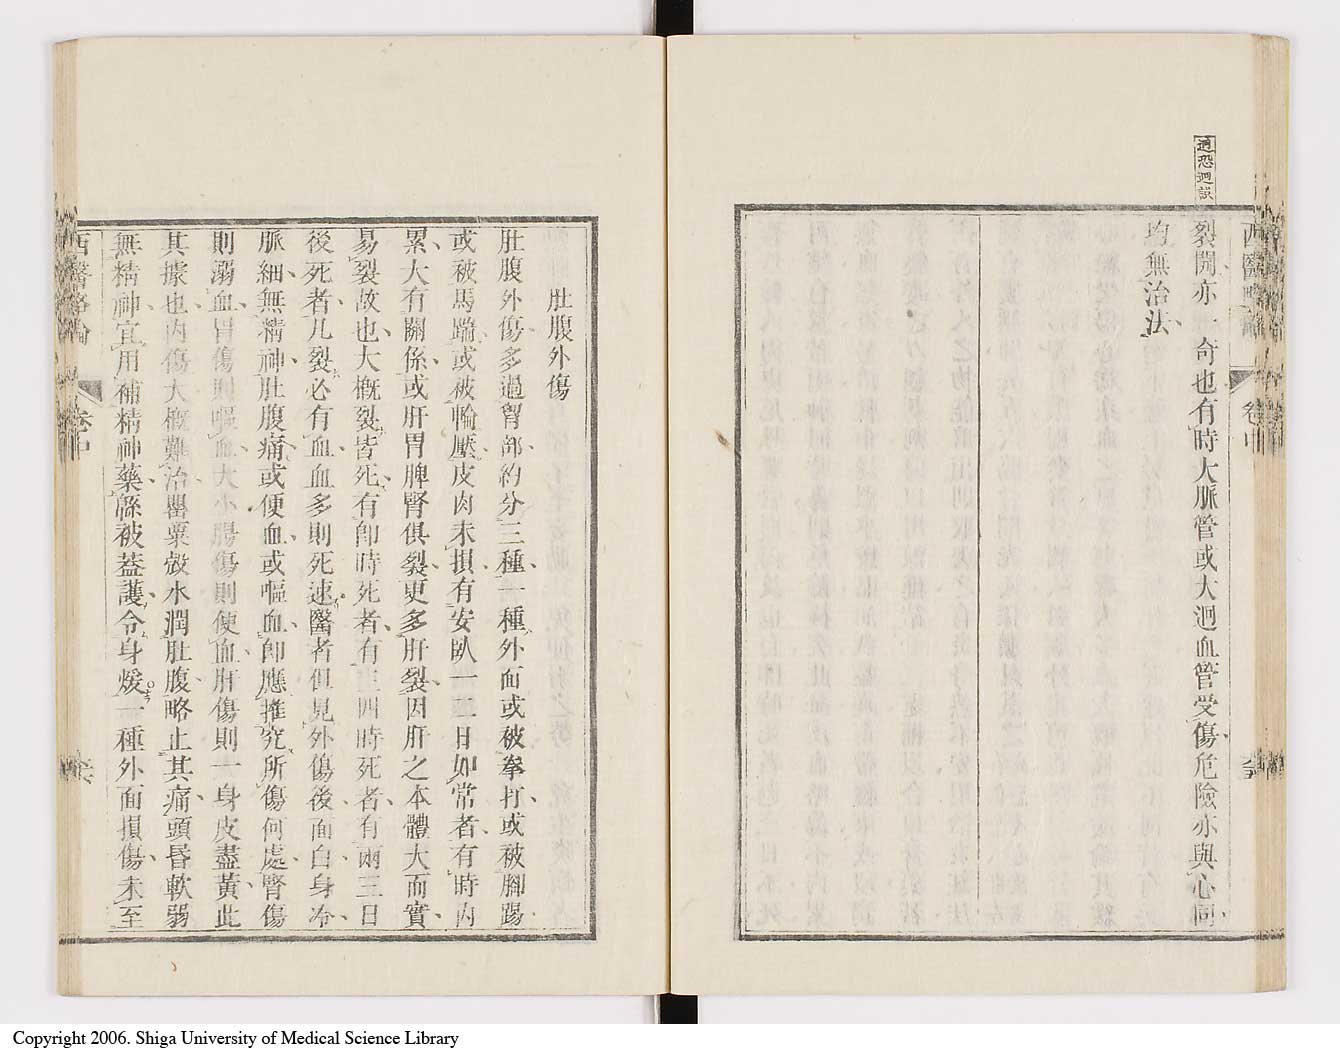 裂開亦一奇也有時大脈管或大迴血管受傷危險亦與心同
均無治法
西醫略論
卷中
肚腹外傷
肚腹外傷多過胷部約分三種一種外面或被拳打或被腳踢
或被馬踹或被輪壓皮肉未損有安臥一二日如常者有時内
累大有關係或肝胃脾腎俱裂更多肝裂因肝之本體大而實
易裂故也大概裂皆死有卽時死者有三四時死者有兩三日
後死者凡裂必有血血多則死速醫者但見外傷後面白身冷
脈細無精神肚腹痛或便血或嘔血卽應推究所傷何處腎傷
則溺血胃傷則嘔血大小腸傷則便血肝傷則一身皮盡黃此
其據也内傷大概難治罌粟殼水潤肚腹略止其痛頭昏軟弱
無精神宜用補精神藥緜被蓋護令身煖一種外面損傷未至
西醫略論
卷中
Copyright 2006. Shiga University of Medical Science Library